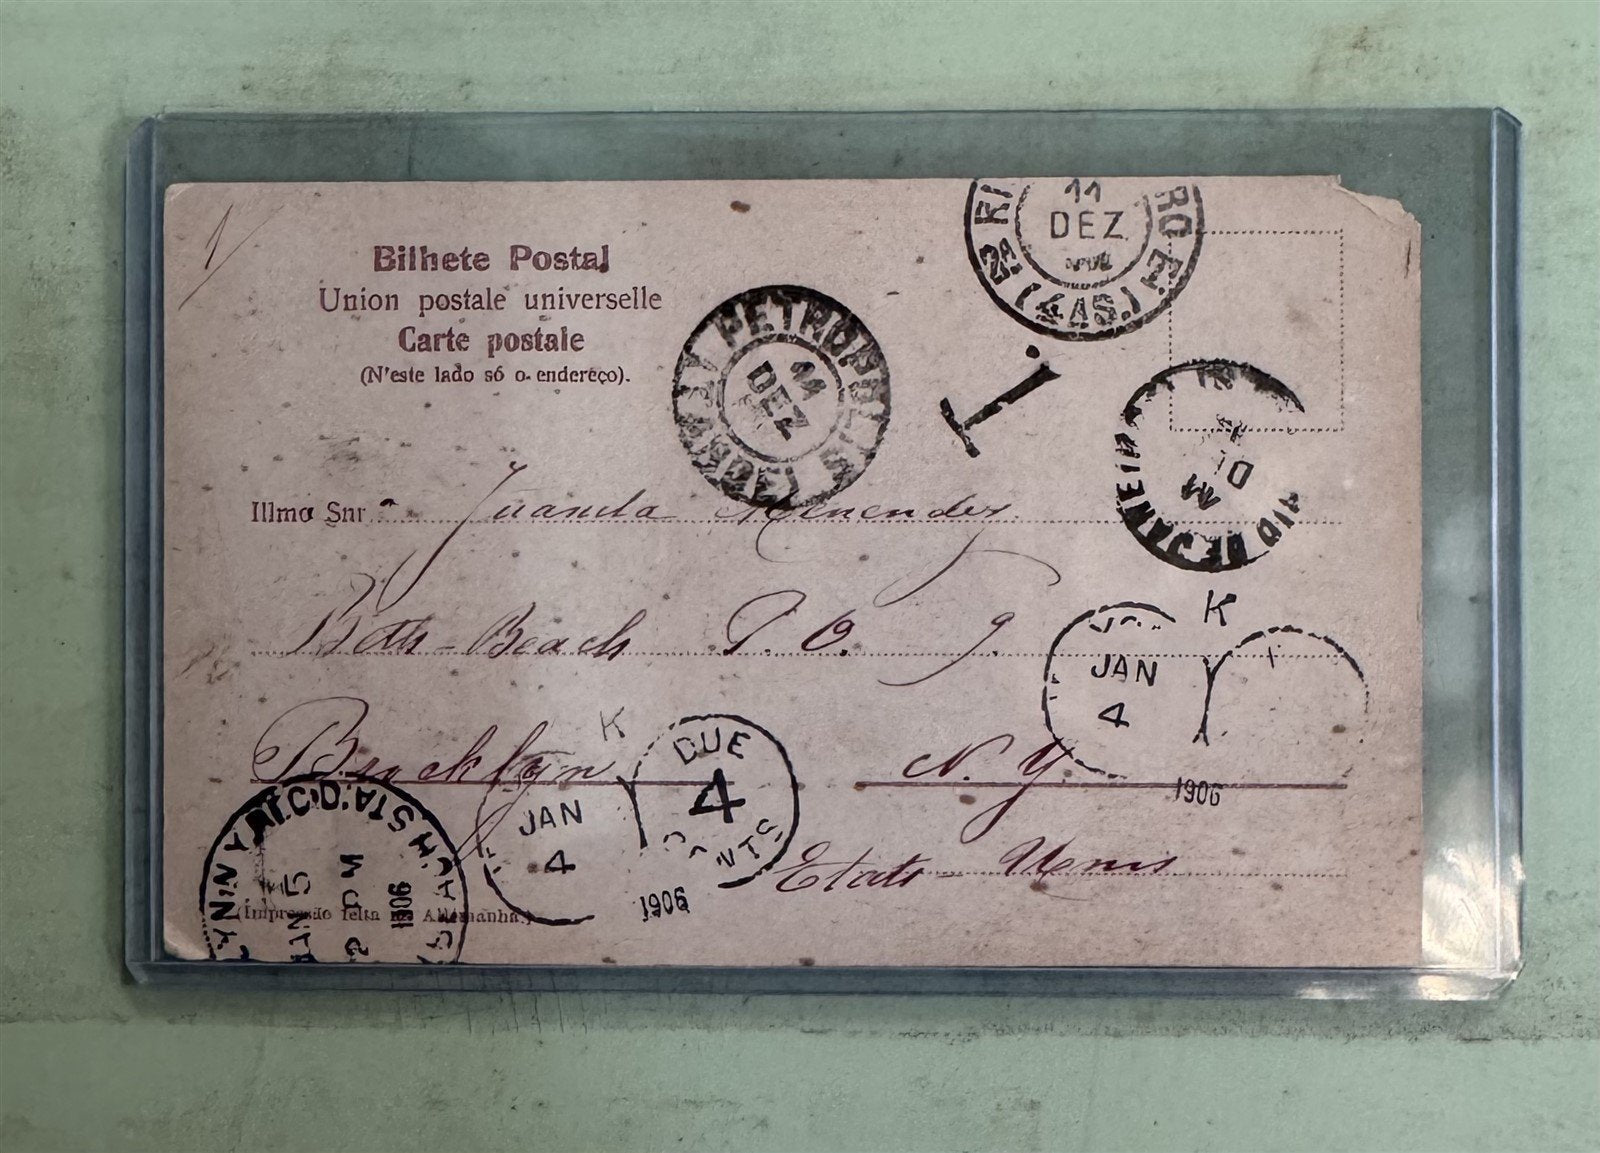 1/
Bilhete Postal
Union postale universelle
Carte postale
(N'este lado só o endereço).
11
DEZ
(4ªS.)
PETROPOLIS
11
DEZ
T.
RIO DE JANEIRO
11
D
Illmo Snr
Juanita Menendez
Bath-Beach P. O. 9.
Brooklyn N. Y.
Etats-Unis
K
JAN
4
1906
K
JAN
4
1906
DUE
4
CENTS
BATH STA.
JAN 5
2 PM
1906
(Impressão feita na Allemanha.)